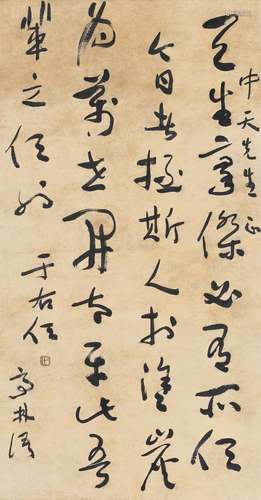 中天先生正
天生豪傑必有所任
今日者拯斯人於塗炭
為萬世開太平此吾
輩之任也
于右任
亭林語